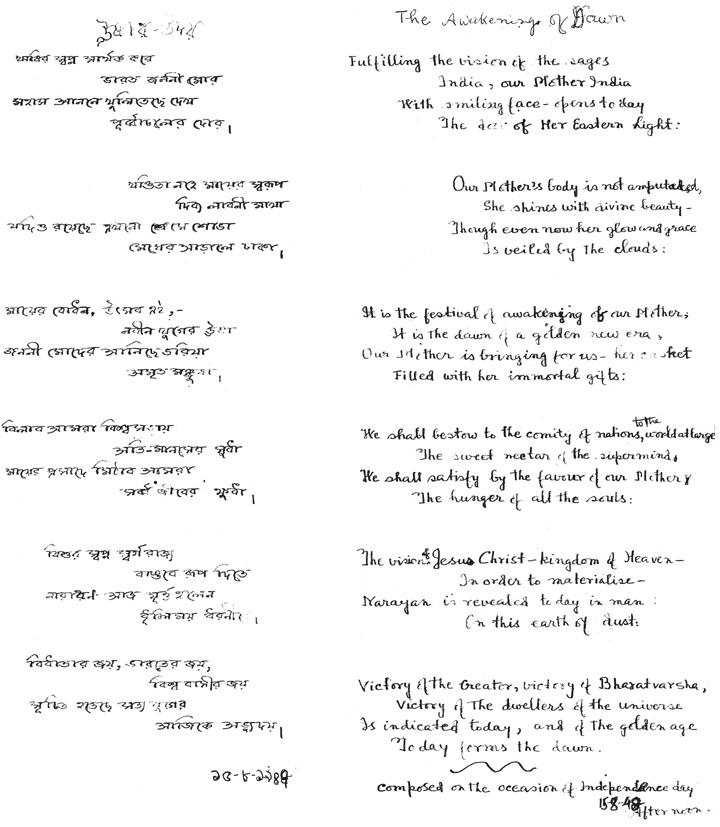 ঊষার-উদয়
ঋষির স্বপ্ন সার্থক করে
ভারত জননী মোর
সহাস আননে খুলিতেছে দেখ
পূর্ব্বাচলের দোর।
খণ্ডিতা নহে মায়ের স্বরূপ
দিব্য লাবনী মাখা
যদিও রয়েছে এখনো সে শোভা
মেঘের আড়ালে ঢাকা।
মায়ের বোধন, উৎসব এই,-
নবীন যুগের ঊষা
জননী মোদের আনিছে ভরিয়া
অমৃত মঞ্জুষা।
বিলাব আমরা বিশ্বসভায়
অতি-মানসের সুধা
মায়ের প্রসাদে মিটাব আমরা
সর্ব্ব জীবের ক্ষুধা।
যিশুর স্বপ্ন স্বর্গরাজ্য
বাস্তবে রূপ দিতে
নারায়ণ আজ মূর্ত্ত হলেন
ধূলিময় ধরণীতে।
বিধাতার জয়, ভারতের জয়,
বিশ্ব বাসীর জয়
সূচিত হতেছে সত্য যুগের
আজিকে অভ্যুদয়।
১৫-৮-১৯৪৭
The Awakening of Dawn
Fulfilling the vision of the sages
India, our Mother India
With smiling face - opens today
The door of Her Eastern Light:
Our Mother's body is not amputated,
She shines with divine beauty -
Though even now her glow and grace
Is veiled by the clouds:
It is the festival of awakening of our Mother;
It is the dawn of a golden new era,
Our Mother is bringing for us - her casket
Filled with her immortal gifts:
We shall bestow to the comity of nations, to the world at large
The sweet nectar of the supermind,
We shall satisfy by the favour of our Mother,
The hunger of all the souls:
The vision of Jesus Christ - kingdom of Heaven -
In order to materialise -
Narayan is revealed today in man:
On this earth of dust:
Victory of the Creator, victory of Bharatvarsha,
Victory of The dwellers of the universe
Is indicated today, and of the golden age
Today forms the dawn.
composed on the occasion of Independence day
15-8-48
Afternoon.